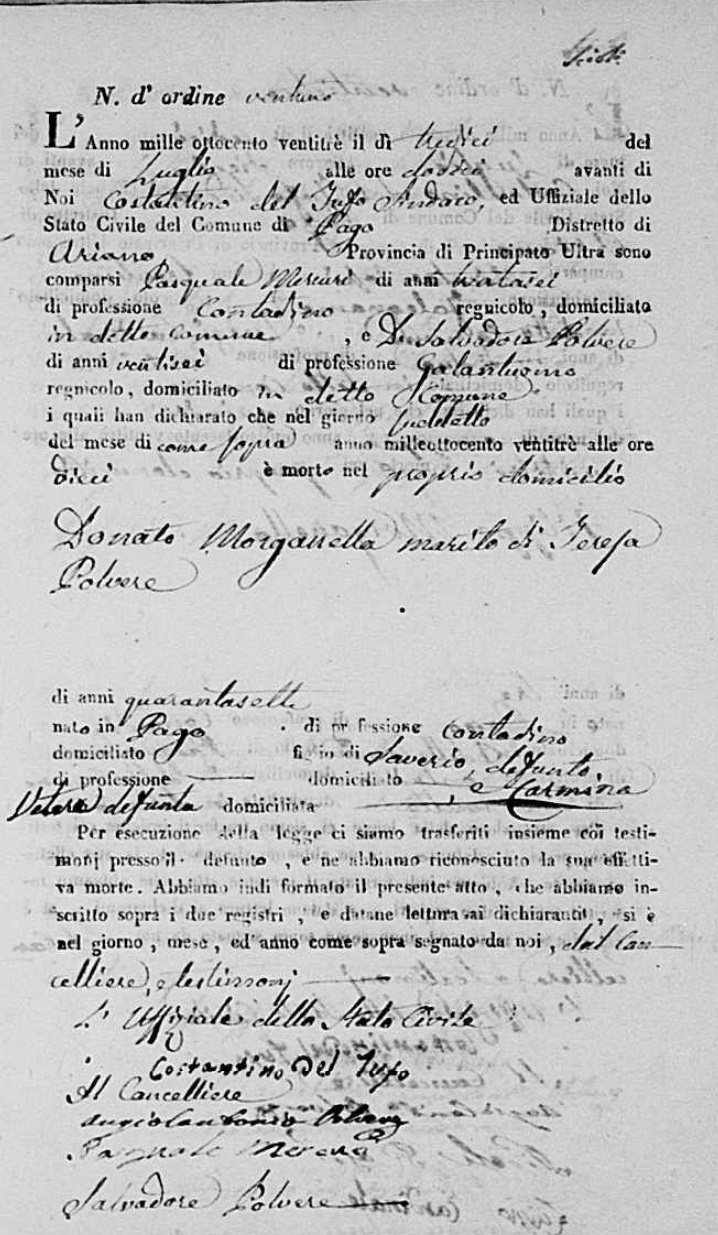 N. d' ordine ventuno
L'Anno mille ottocento ventitrè il dì tredici del
mese di Luglio alle ore dodici avanti di
Noi Costantino del Tufo Sindaco, ed Uffiziale dello
Stato Civile del Comune di Pago Distretto di
Ariano, Provincia di Principato Ultra sono
comparsi Pasquale Mercuri di anni trentasei
di professione Contadino regnicolo, domiciliato
in detto comune, e Dn Salvadore Polvere
di anni ventisei di professione Galantuomo
regnicolo, domiciliato in detto Comune
i quali han dichiarato che nel giorno sudetto
del mese di come sopra anno milleottocento ventitrè alle ore
dieci è morto nel proprio domicilio
Donato Morganella marito di Teresa
Polvere
di anni quarantasette
nato in Pago di professione contadino
domiciliato figlio di Saverio, defunto,
di professione domiciliato e Carmina
defunta domiciliata
Per esecuzione della legge ci siamo trasferiti insieme coi testi-
monj presso il defunto, e ne abbiamo riconosciuto la sua effetti-
va morte. Abbiamo indi formato il presente atto, che abbiamo in-
scritto sopra i due registri, e datane lettura ai dichiaranti, si è
nel giorno, mese, ed anno come sopra segnato da noi, dal Can-
celliere, e testimonj
L'Uffiziale dello Stato Civile
Costantino Del Tufo
Il Cancelliere
Angiolantonio Polvere
Pasquale
Salvadore Polvere